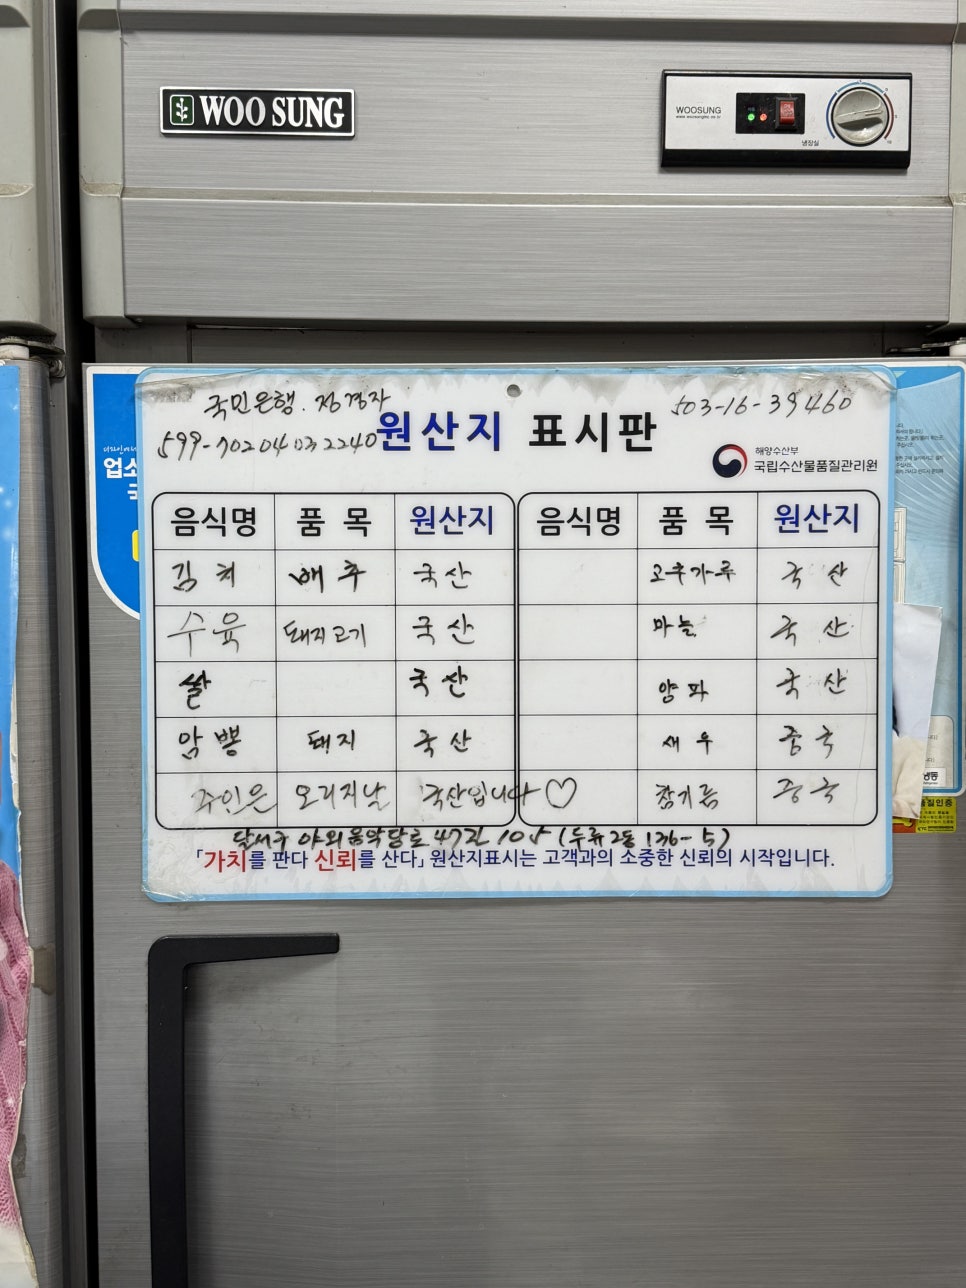 WOO SUNG
WOOSUNG
냉장실
국민은행. 정경자
503-16-39460
599-70204032240
원산지 표시판
해양수산부
국립수산물품질관리원
음식명 품 목 원산지 음식명 품 목 원산지
김치 배추 국산 고추가루 국산
수육 돼지고기 국산 마늘 국산
쌀 국산 양파 국산
암뽕 돼지 국산 새우 중국
주인은 오리지날 국산입니다♡ 참기름 중국
달서구 야외음악당로 47길 105 (두류2동 136-5)
「가치를 판다 신뢰를 산다」 원산지표시는 고객과의 소중한 신뢰의 시작입니다.